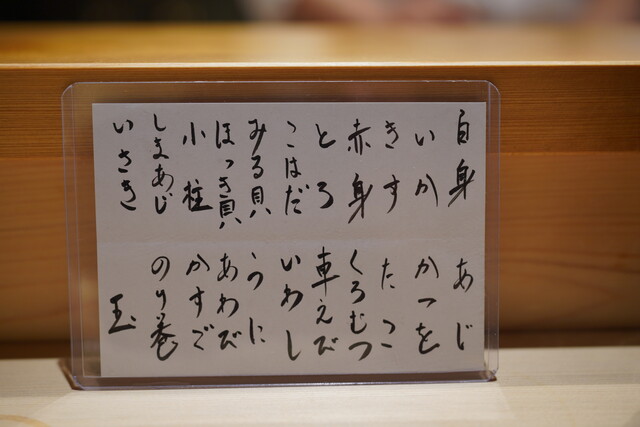 白身
いか
きす
赤身
とろ
こはだ
みる貝
ほっき貝
小柱
しまあじ
いさき
あじ
かつを
たこ
くろむつ
車えび
いわし
うに
あわび
かすご
のり巻
玉